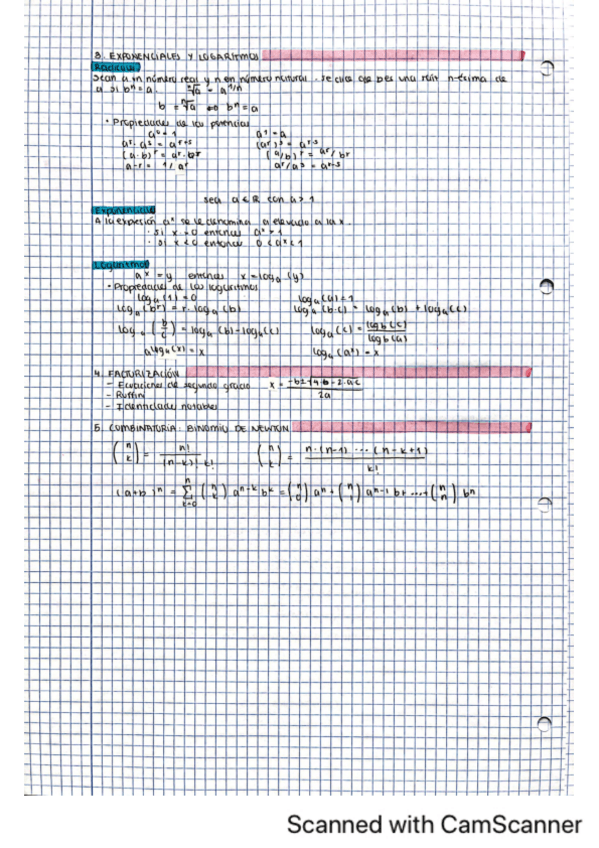 3. EXPONENCIALES Y LOGARITMOS
Radicales
Sean a un número real y n en número natural. Se dice que b es una raíz n-ésima de
a si bⁿ = a. ⁿ√a = a^{1/n}
b = ⁿ√a ⇔ bⁿ = a
• Propiedades de las potencias
a⁰ = 1 a¹ = a
a^r · a^s = a^{r+s} (a^r)^s = a^{r·s}
(a·b)^r = a^r · b^r (a/b)^r = a^r / b^r
a^{-r} = 1 / a^r a^r / a^s = a^{r-s}
sea a ∈ ℝ con a > 1
Exponencial
A la expresión a^x se le denomina a elevado a la x.
• si x > 0 entonces a^x > 1
• si x < 0 entonces 0 < a^x < 1
Logaritmos
a^x = y entonces x = log_a (y)
• Propiedades de los logaritmos
log_a (1) = 0 log_a (a) = 1
log_a (b^r) = r · log_a (b) log_a (b·c) = log_a (b) + log_a (c)
log_a (b/c) = log_a (b) - log_a (c) log_a (c) = log_b (c) / log_b (a)
a^{log_a (x)} = x log_a (a^x) = x
4. FACTORIZACIÓN
- Ecuaciones de segundo grado x = / 2a
- Ruffini
- Identidades notables
5. COMBINATORIA. BINOMIO DE NEWTON
(n k) = n! / (n-k)! k! (n k) = n·(n-1) ··· (n-k+1) / k!
(a+b)ⁿ = Σ_{k=0}^{n} (n k) a^{n-k} b^k = (n 0) aⁿ + (n 1) a^{n-1} b + ··· + (n n) bⁿ
Scanned with CamScanner